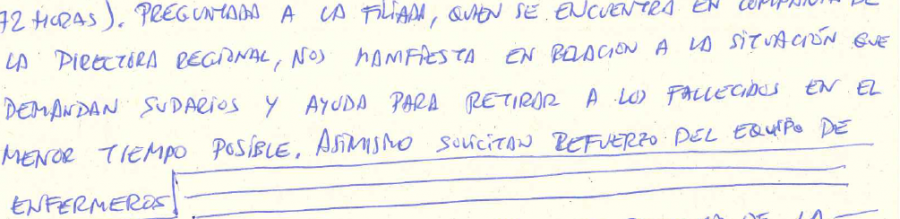 72 HORAS). PREGUNTADA A LA FILIADA, QUIEN SE ENCUENTRA EN COMPAÑIA DE
LA DIRECTORA REGIONAL, NOS MANIFIESTA EN RELACION A LA SITUACIÓN QUE
DEMANDAN SUDARIOS Y AYUDA PARA RETIRAR A LOS FALLECIDOS EN EL
MENOR TIEMPO POSIBLE. ASIMISMO SOLICITAN REFUERZO DEL EQUIPO DE
ENFERMEROS
DE LA